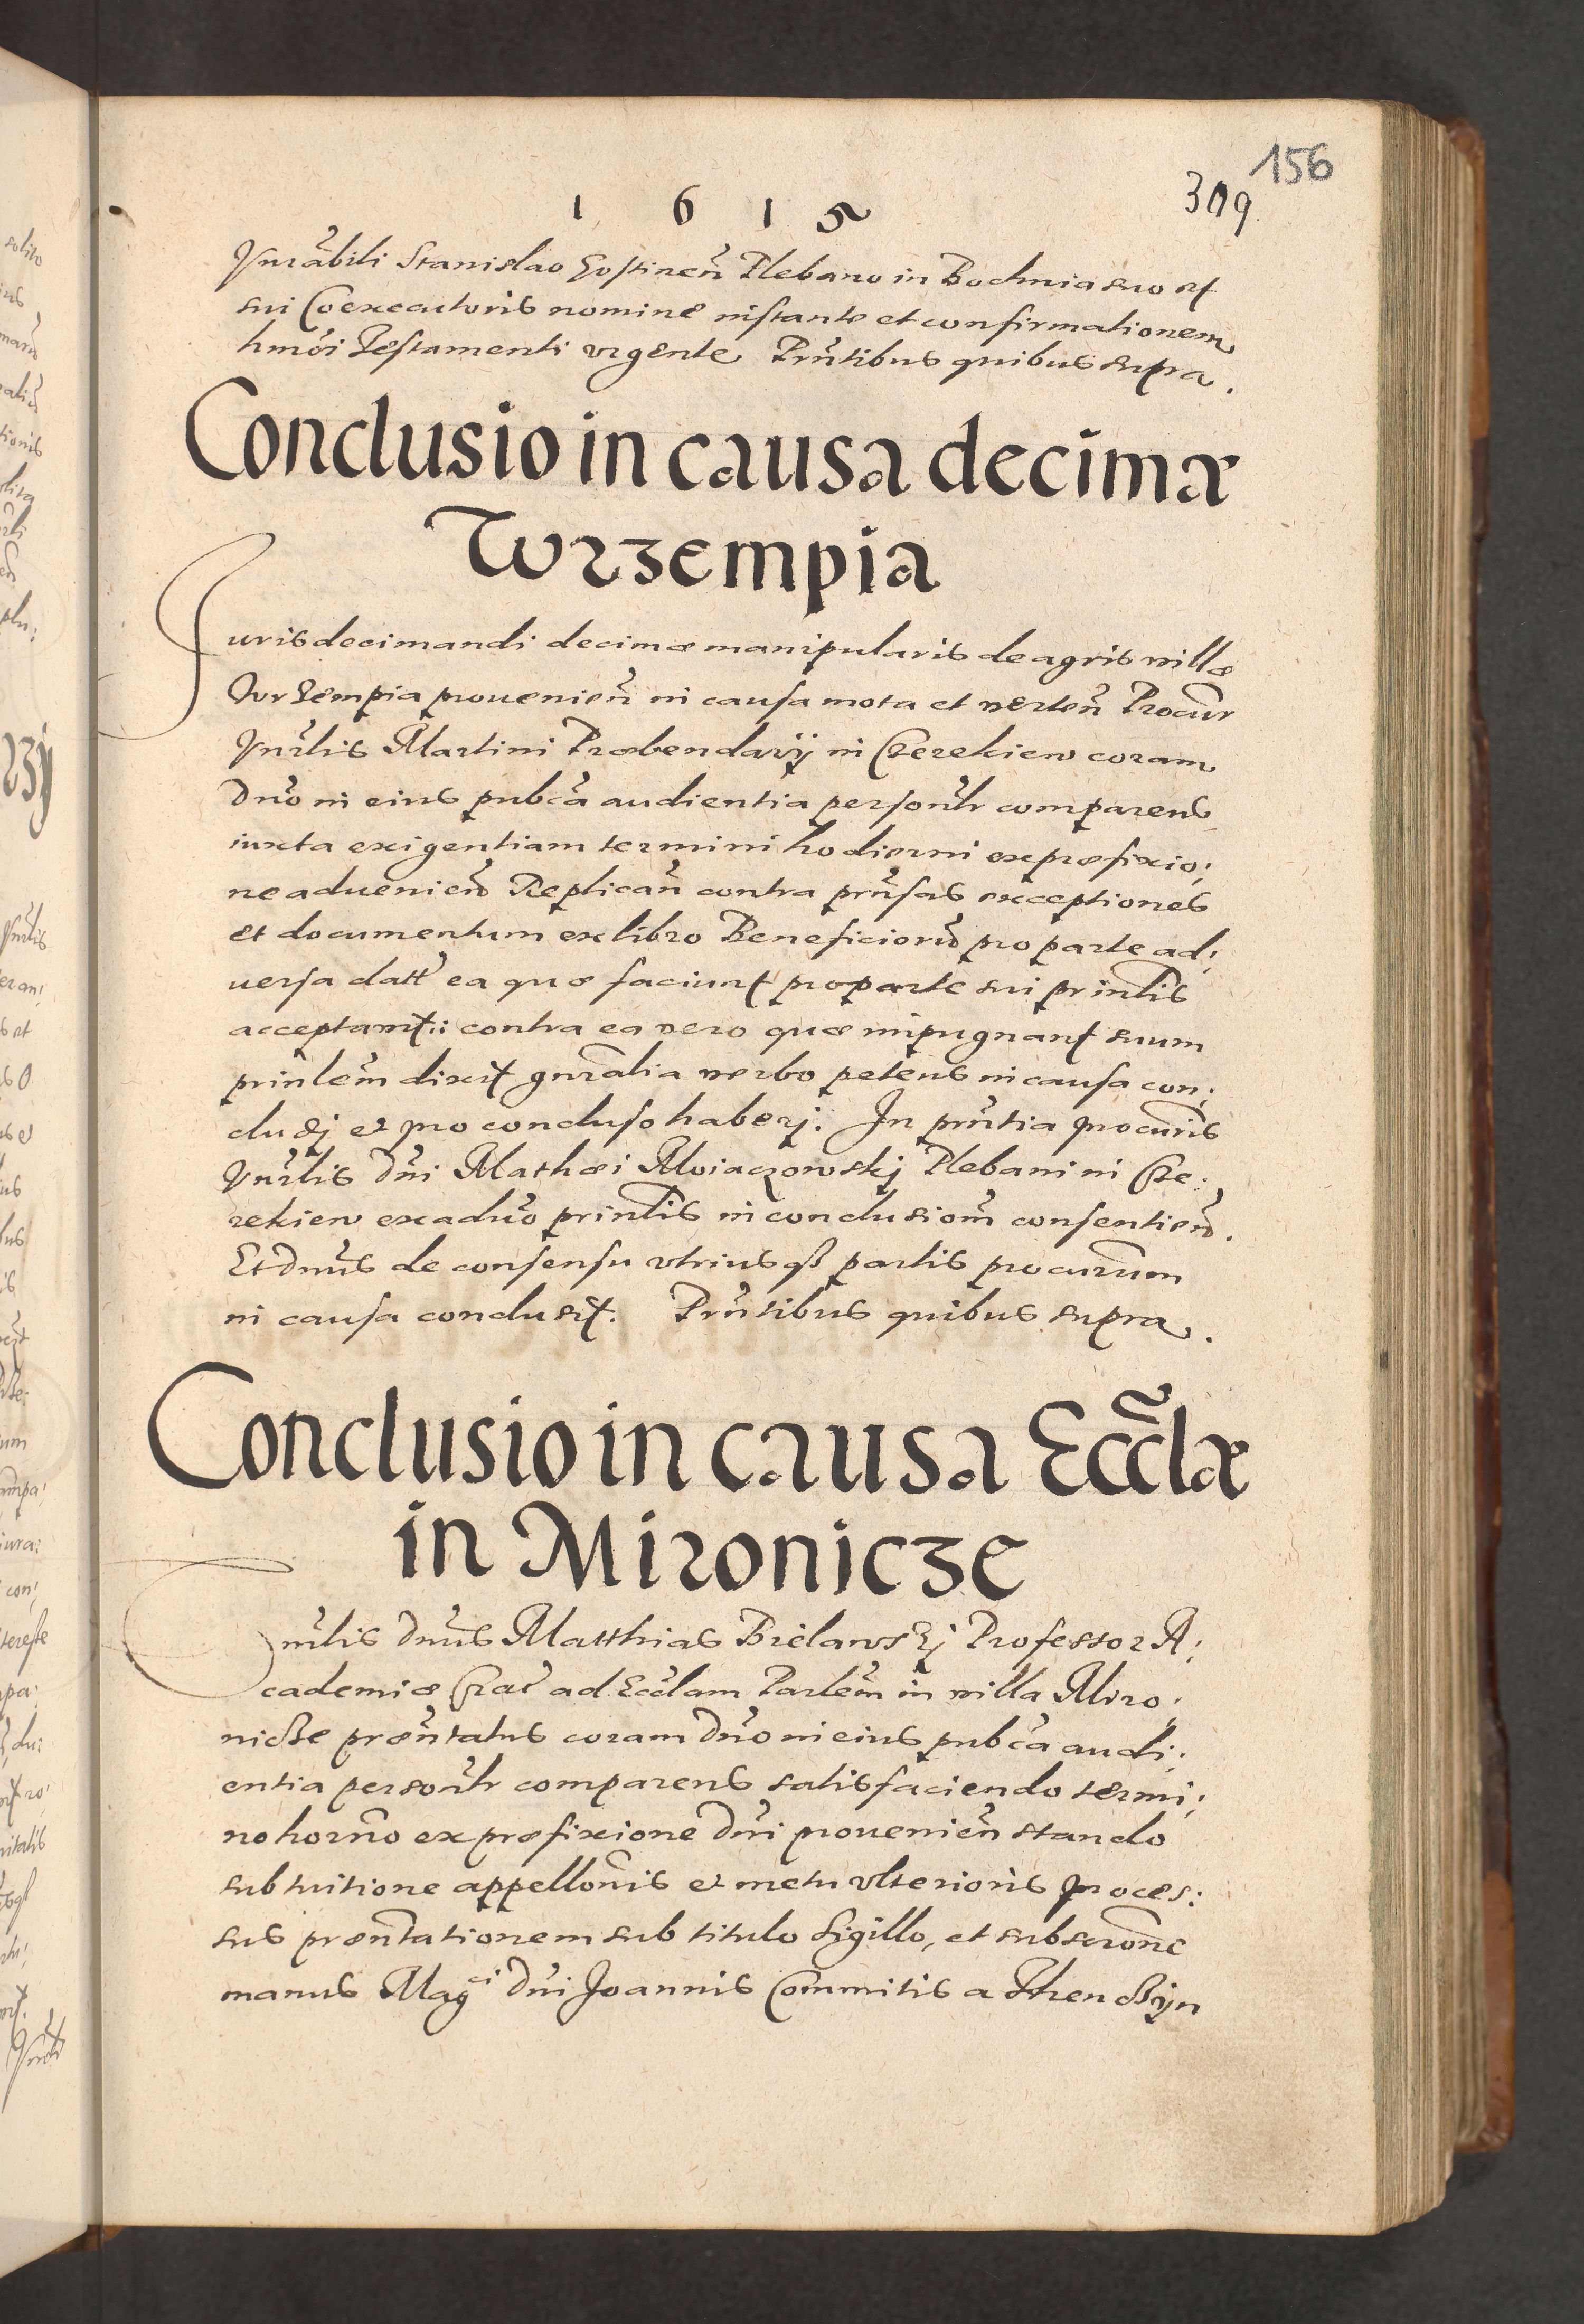 156
309
1 6 1 5
Vnrãbili Stanislao Gostinen̄ Plebano in Bochnia suo et
sui Coexecutoris nomine instante et confirmationem
hmōi Testamenti vrgente Prn̄tibus quibus supra.
Conclusio in causa decimæ
Turzempia
Juris decimandi decimæ manipularis de agris villæ
Turzempia prouenien̄ in causa mota et verten̄ Procur̄
Vnrlis Martini Præbendarij in Czerekiew coram
Dno in eius pubca audientia personlr comparens
iuxta exigentiam termini hodierni ex præfixio:
ne aduenien̄ Replican̄ contra prn̄sas exceptiones
et documentum ex libro Beneficiorū pro parte ad:
uersa datt ea quæ faciunt pro parte sui prin̄lis
acceptant: contra ea vero quæ impugnant suum
prinlem dixit gnralia verbo petens in causa con:
cludj et pro concluso haberj. In prn̄tia procuris
Vnrlis Dni Mathæi Moiaczowskj Plebani in Cze:
rekiew ex aduo prin̄lis in conclusiom̄ consentien̄.
Et Dnus de consensu vtriusqȝ partis procurum
in causa conclusit. Prn̄tibus quibus supra.
Conclusio in causa Eccłæ
in Mironicze
Dnus Matthias Bielawskj Professor A:
cademiæ Crac̄ ad Ecclam Parlem in villa Miro:
nicze præn̄tatus coram Dno in eius pubca audi:
entia personlr comparens satisfaciendo termi:
no horno ex præfixione Dni prouenien̄ stando
sub tuitione appellonis et metu vlterioris proces:
sus præn̄tationem sub titulo Sigillo, et subscrone
manus Magci Dni Joannis Commitis a Thenczijn